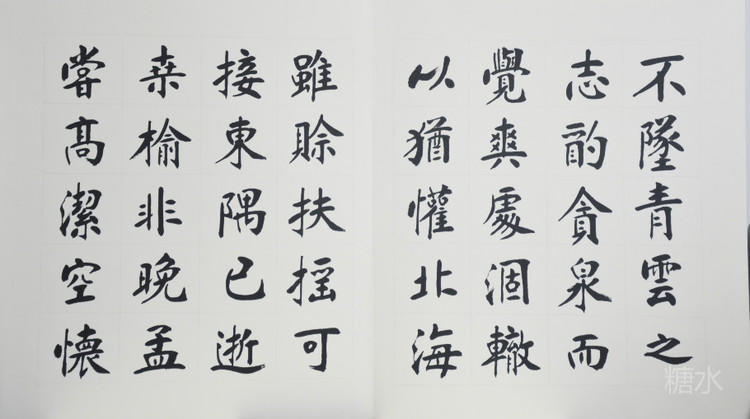 不墜青雲之
志酌貪泉而
覺爽處涸轍
以猶懽北海
雖賒扶揺可
接東隅已逝
桒榆非晚孟
甞髙潔空懷
糖水